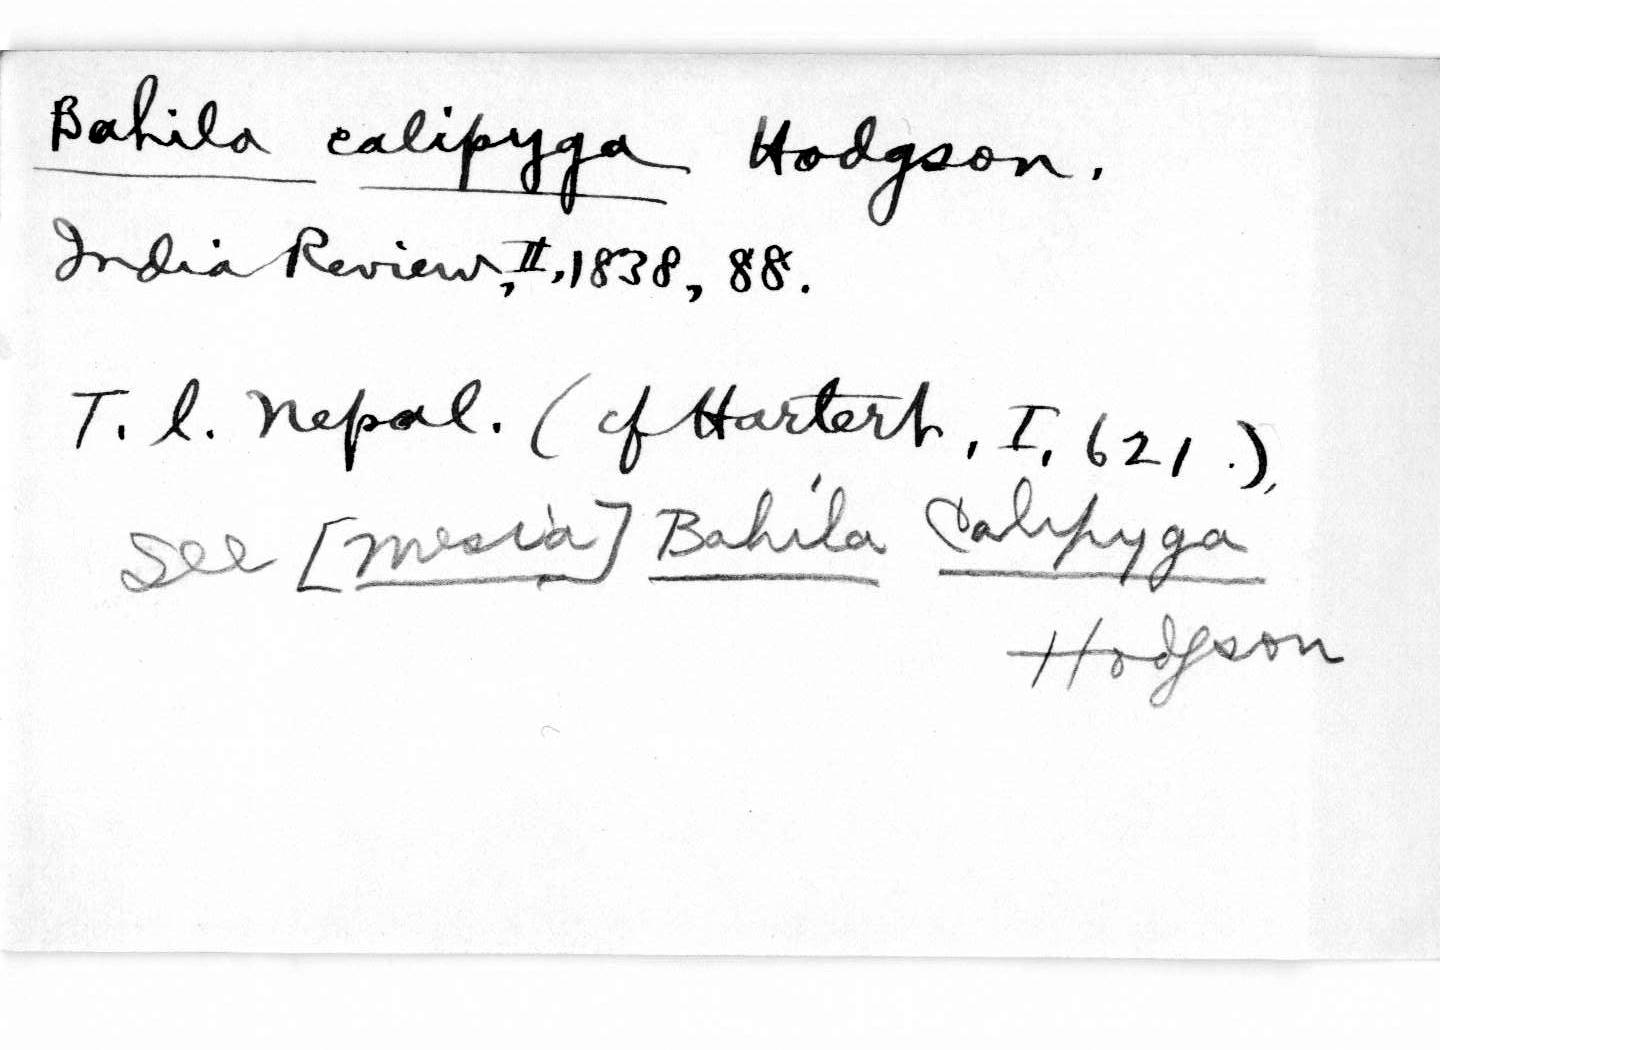 Bahila calipyga Hodgson.
India Review, II, 1838, 88.
T. l. Nepal. (cf Hartert, I, 621.),
See [Mesia] Bahila Calipyga
Hodgson